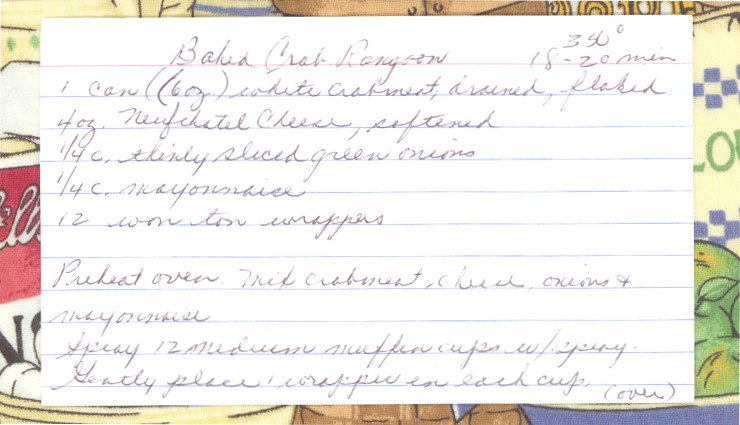 Baked Crab Rangoon
350°
18-20 min
1 can (6oz.) white crabmeat, drained, flaked
4 oz. Neufchatel Cheese, softened
1/4 c. thinly sliced green onions
1/4 c. mayonnaise
12 won ton wrappers
Preheat oven. Mix crabmeat, cheese, onions &
mayonnaise
Spray 12 medium muffin cups w/ spray.
Gently place 1 wrapper in each cup.
(over)